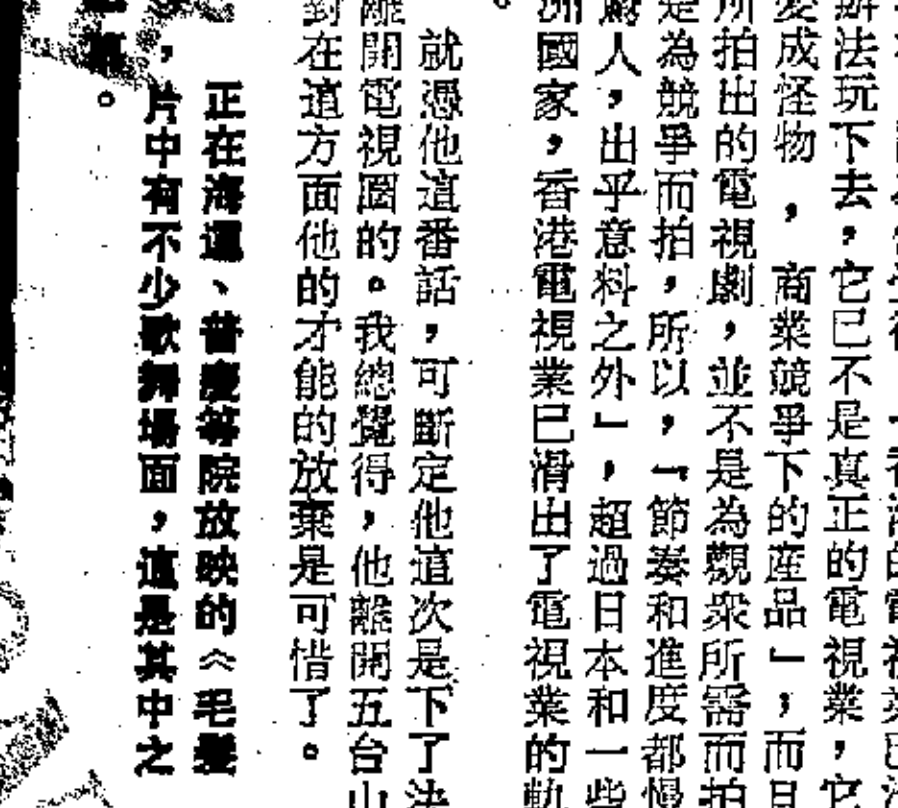 辦法玩下去，它已不是真正的電視業，它
變成怪物，商業競爭下的産品」，而且
所拍出的電視劇，並不是為觀衆所需而拍
是為競爭而拍，所以，「節奏和進度都慢
人，出乎意料之外」，超過日本和一些
洲國家，香港電視業已滑出了電視業的軌
。
就憑他這番話，可斷定他這次是下了決
離開電視圈的。我總覺得，他離開五台山
對在這方面他的才能的放棄是可惜了。
正在海運、普慶等院放映的《毛髮
，片中有不少歌舞場面，這是其中之
幕。